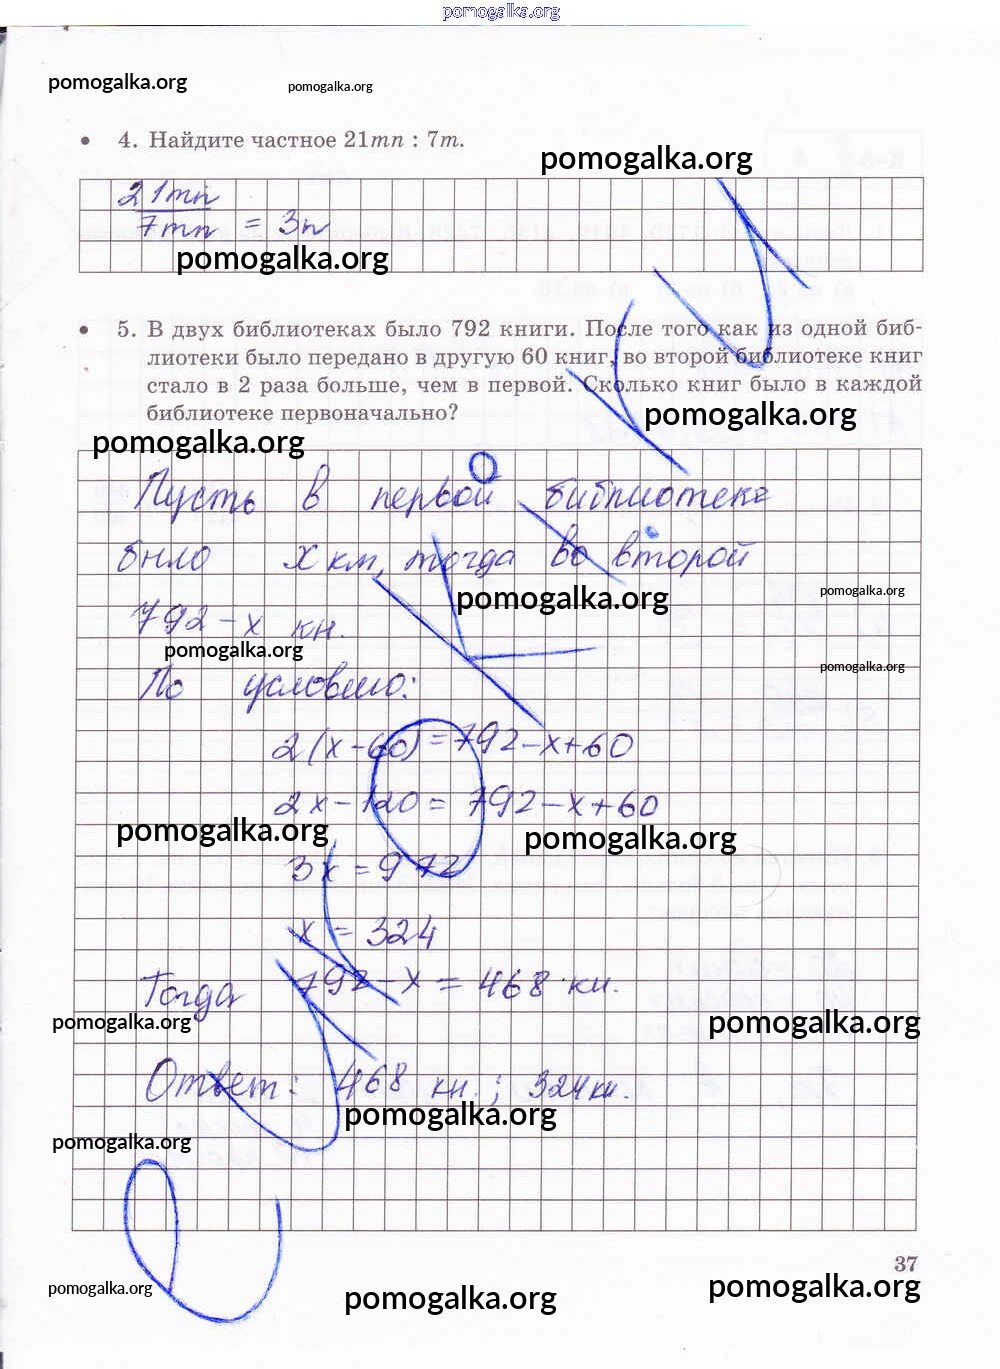 pomogalka.org
pomogalka.org
pomogalka.org
4. Найдите частное 21mn : 7m.
pomogalka.org
21mn
7mn = 3n
pomogalka.org
5. В двух библиотеках было 792 книги. После того как из одной биб-
лиотеки было передано в другую 60 книг, во второй библиотеке книг
стало в 2 раза больше, чем в первой. Сколько книг было в каждой
библиотеке первоначально?
pomogalka.org
pomogalka.org
Пусть в первой библиотеке
было x км, тогда во второй
pomogalka.org
pomogalka.org
792 - x кн.
pomogalka.org
pomogalka.org
По условию:
2(x-60) = 792-x+60
2x-120 = 792-x+60
pomogalka.org
pomogalka.org
3x = 972
x = 324
Тогда 792-x = 468 кн.
pomogalka.org
pomogalka.org
Ответ: 468 кн.; 324 кн.
pomogalka.org
pomogalka.org
37
pomogalka.org
pomogalka.org
pomogalka.org